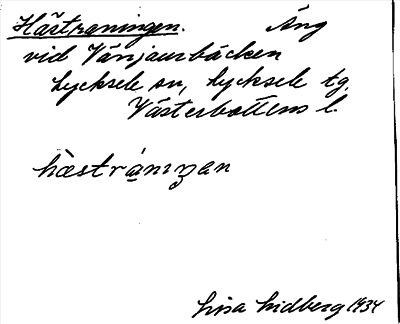 Hästraningen. Äng
vid Vänjaurbäcken
Lycksele sn, Lycksele tg.
Västerbottens l.
hæstránıŋan
Lisa Lidberg 1934